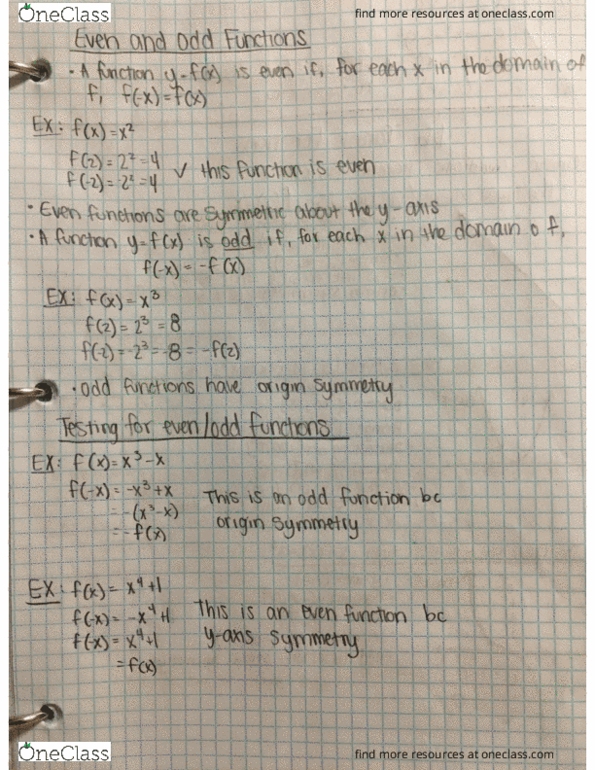 OneClass
find more resources at oneclass.com
Even and Odd Functions
• A function y=f(x) is even if, for each x in the domain of
f, f(-x)=f(x)
EX: f(x)=x²
f(2)=2²=4
f(-2)=-2²=4
✓ this function is even
• Even functions are symmetric about the y-axis
• A function y=f(x) is odd if, for each x in the domain of f,
f(-x) = -f(x)
EX: f(x)=x³
f(2)=2³=8
f(-2)=-2³=-8=-f(2)
• Odd functions have origin symmetry
Testing for even/odd functions
EX: f(x)=x³-x
f(-x)=-x³+x
= -(x³-x)
= -f(x)
This is an odd function bc
origin symmetry
EX: f(x)= x⁴+1
f(-x)= -x⁴+1
f(-x)= x⁴+1
=f(x)
This is an even function bc
y-axis symmetry
OneClass
find more resources at oneclass.com